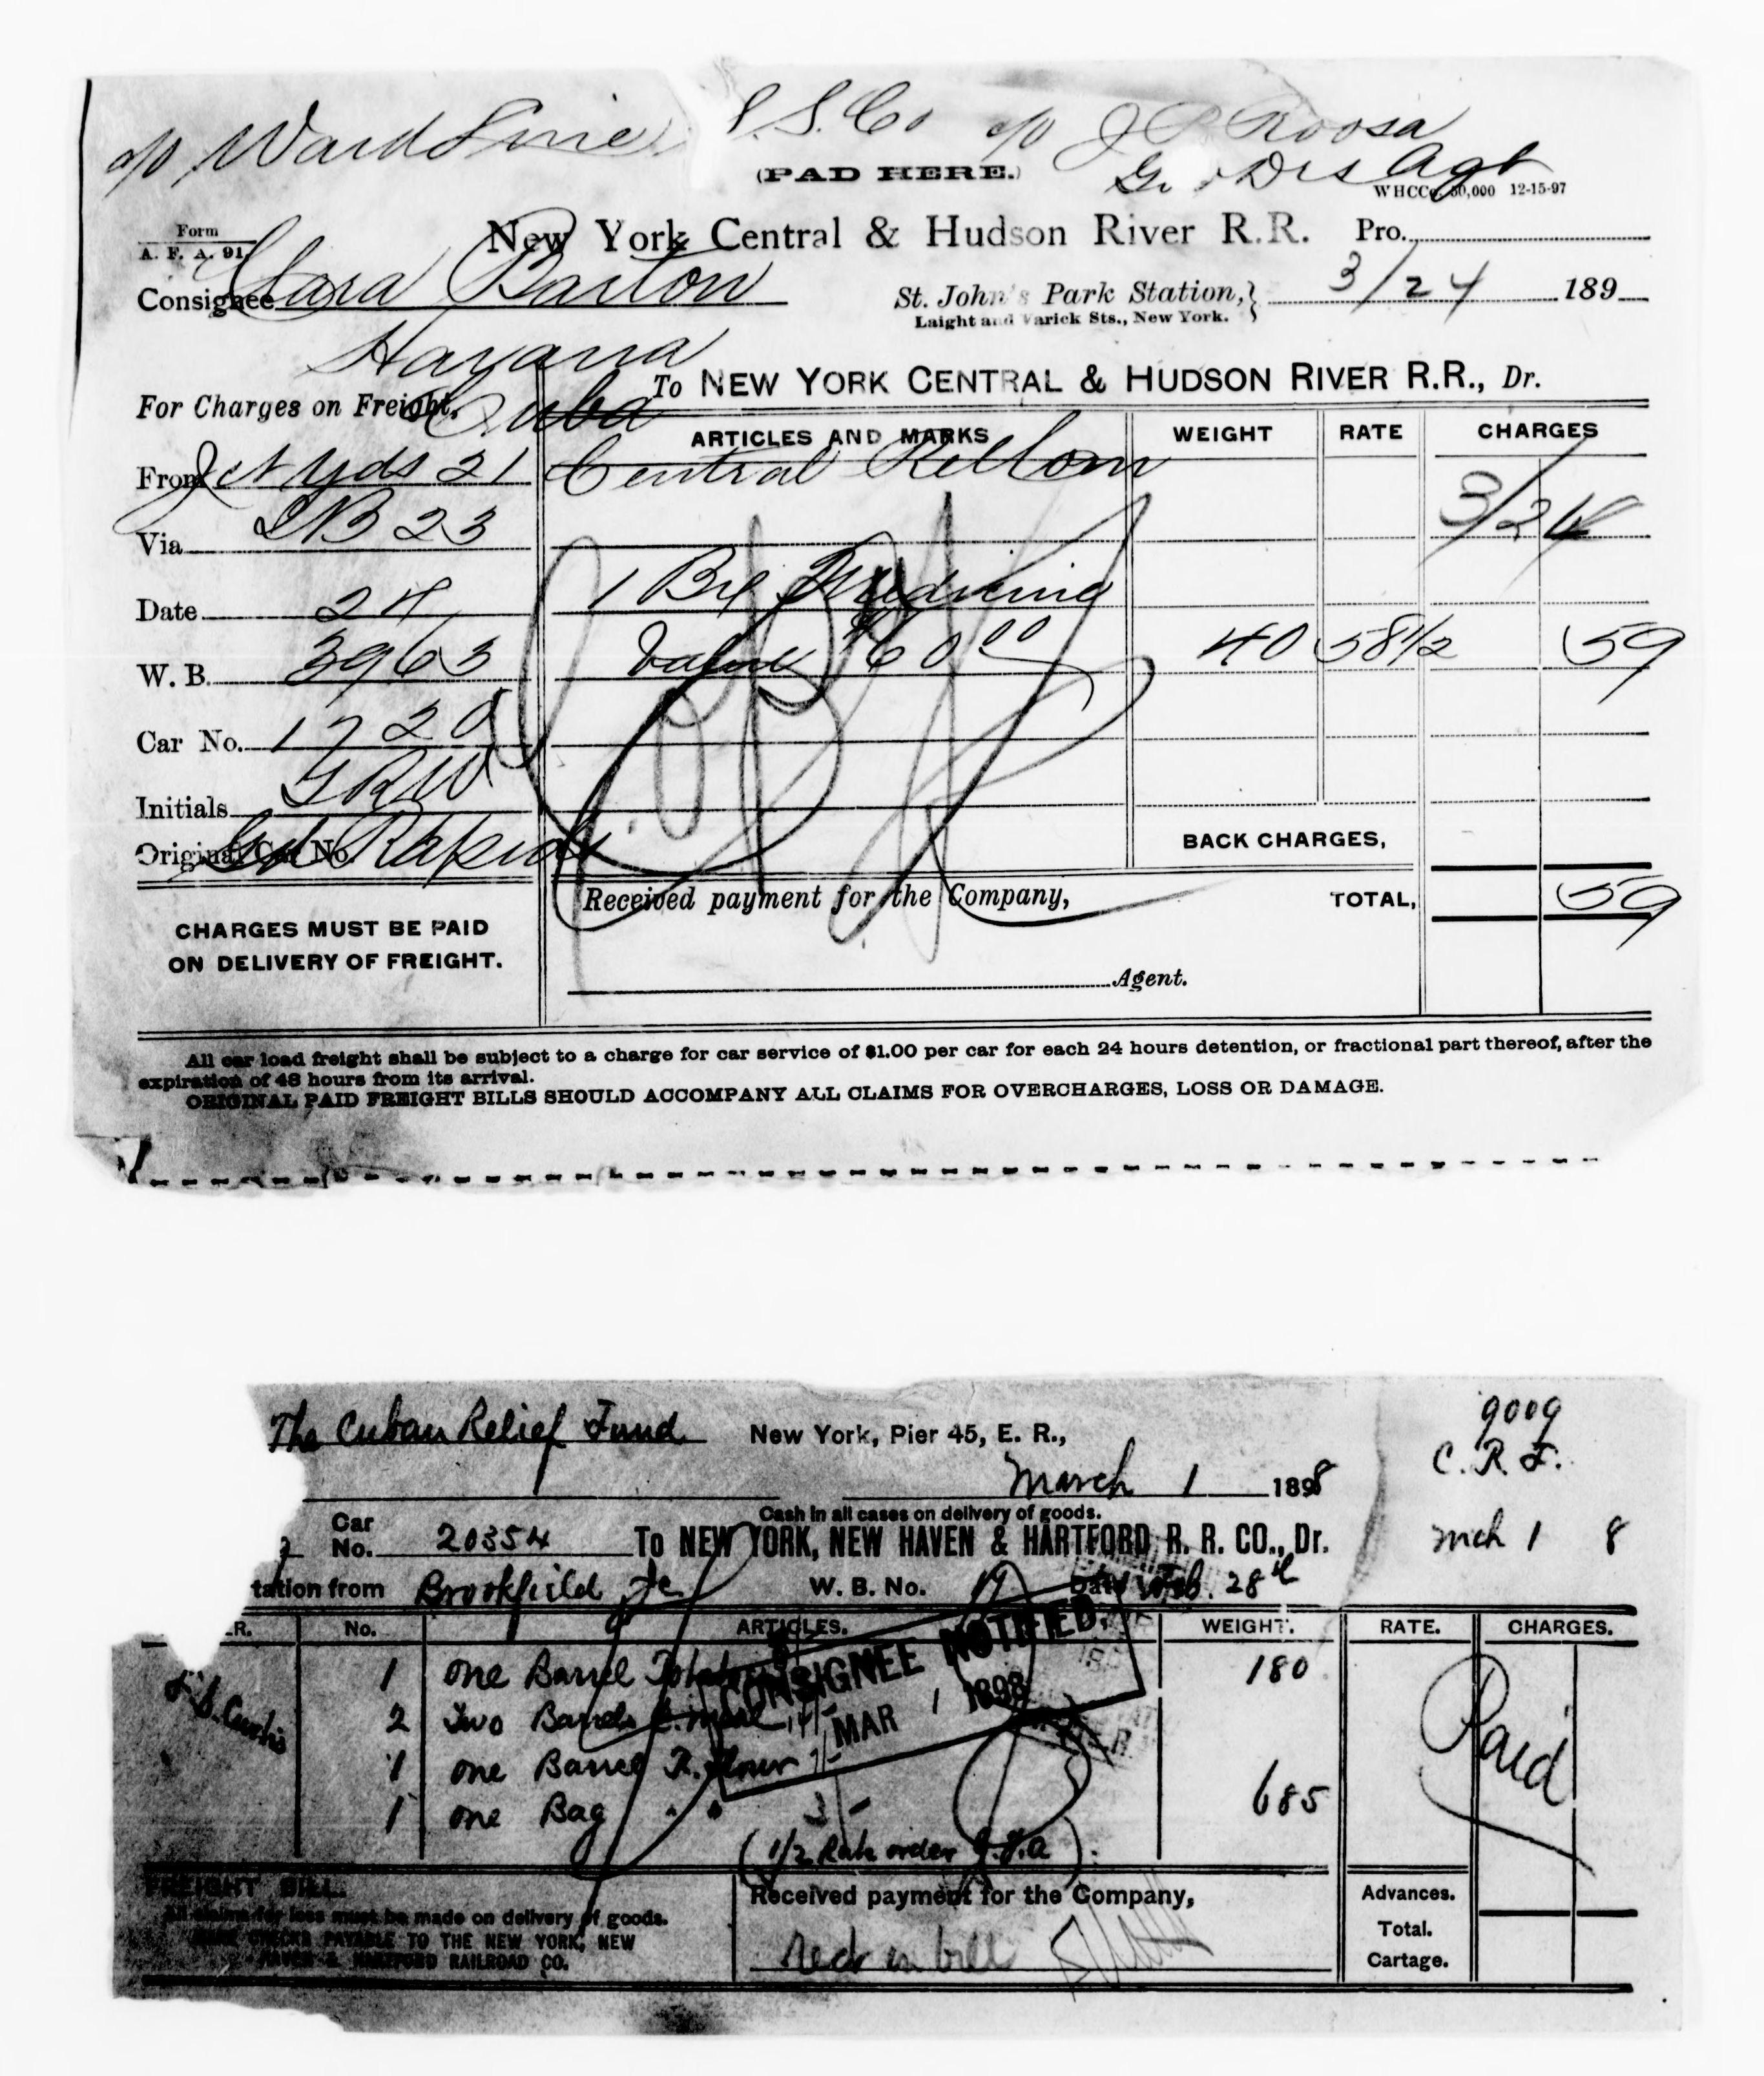 c/o Ward Line S.S. Co c/o J P Roosa
(PAD HERE.)
Ge Dis Agt
WHCCo. 50,000 12-15-97
Form
A. F. A. 91.
New York Central & Hudson River R.R. Pro.
Consignee Clara Barton
St. John's Park Station, 3/24 189
Laight and Varick Sts., New York.
Havana
Cuba
For Charges on Freight,
To NEW YORK CENTRAL & HUDSON RIVER R.R., Dr.
ARTICLES AND MARKS WEIGHT RATE CHARGES
From Jct Yds 21 Central
3/24
Via 23
Date 24 1 Brl Medicine
W. B. 3963 Value $60 00 40 58 1/2 59
Car No. 1720
Initials GRW
Original Car No. Gd Rapids
BACK CHARGES,
Received payment for the Company, TOTAL, 59
CHARGES MUST BE PAID
ON DELIVERY OF FREIGHT.
Agent.
All car load freight shall be subject to a charge for car service of $1.00 per car for each 24 hours detention, or fractional part thereof, after the
expiration of 48 hours from its arrival.
ORIGINAL PAID FREIGHT BILLS SHOULD ACCOMPANY ALL CLAIMS FOR OVERCHARGES, LOSS OR DAMAGE.
9009
The Cuban Relief Fund New York, Pier 45, E. R.,
C. R. F.
March 1 1898
Cash in all cases on delivery of goods.
Car
No. 20354 To NEW YORK, NEW HAVEN & HARTFORD R. R. CO., Dr. Mch 1 8
tation from Brookfield Jc W. B. No. 19 Date Feb. 28th
R. No. ARTICLES. WEIGHT. RATE. CHARGES.
1 one Barrel 180
CONSIGNEE NOTIFIED,
MAR 1 1898
S. Curtis
2 Two Barrels C. Meal
1 one Barrel R. flour
1 one Bag " " 685
Paid
(1/2 Rate order
FREIGHT BILL.
Received payment for the Company, Advances.
All claims for loss must be made on delivery of goods.
MAKE CHECKS PAYABLE TO THE NEW YORK, NEW
HAVEN & HARTFORD RAILROAD CO.
Total.
Cartage.